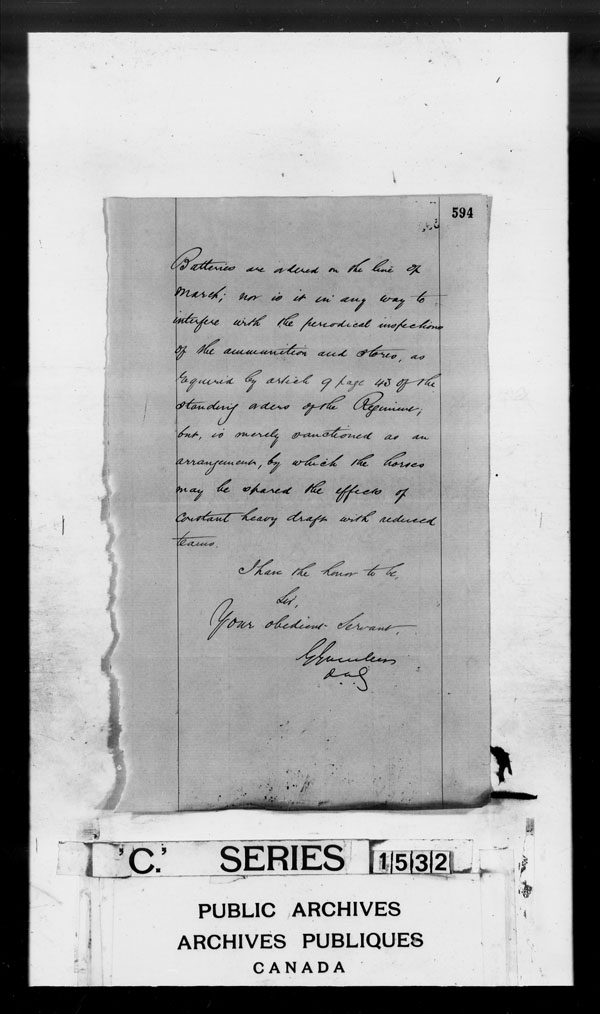 594
Batteries are ordered on the line of
March; nor is it in any way to
interfere with the periodical inspections
of the ammunition and stores, as
required by article 9 page 43 of the
standing orders of the Regiment;
but, is merely sanctioned as an
arrangement, by which the horses
may be spared the effects of
constant heavy draft with reduced
teams.
I have the honor to be,
Sir,
Your obedient Servant,
DAG
'C.' SERIES 1532
PUBLIC ARCHIVES
ARCHIVES PUBLIQUES
CANADA